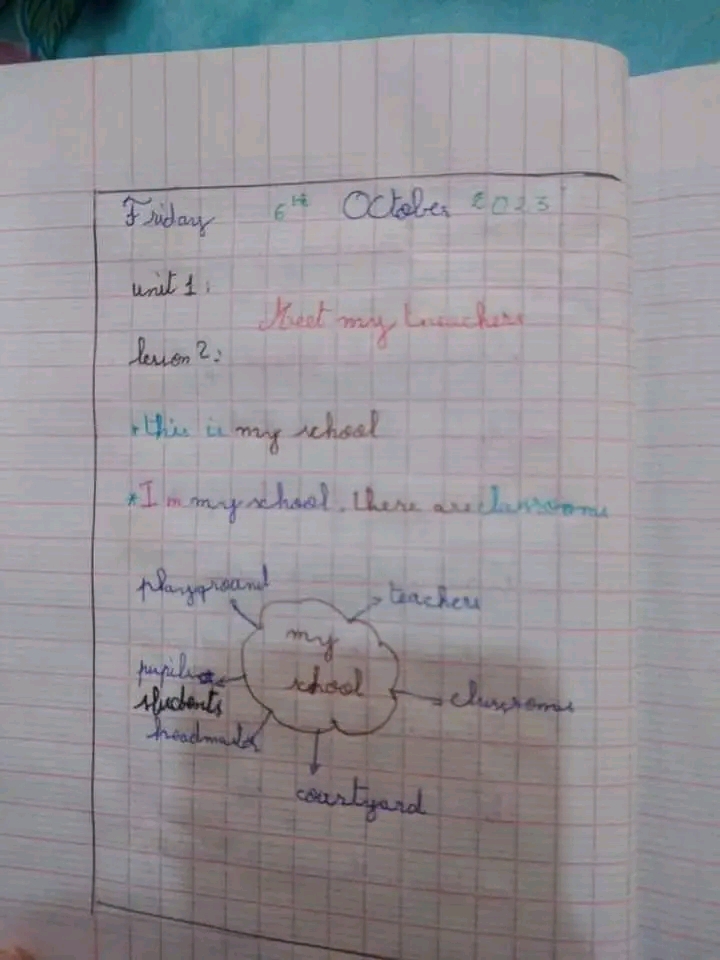 Friday 6th October 2023
unit 1:
Meet my treachers
lesson 2:
*this is my school
*In my school, there are classrooms
playground
teachers
my
school
pupils
classrooms
students
headmaster
courtyard